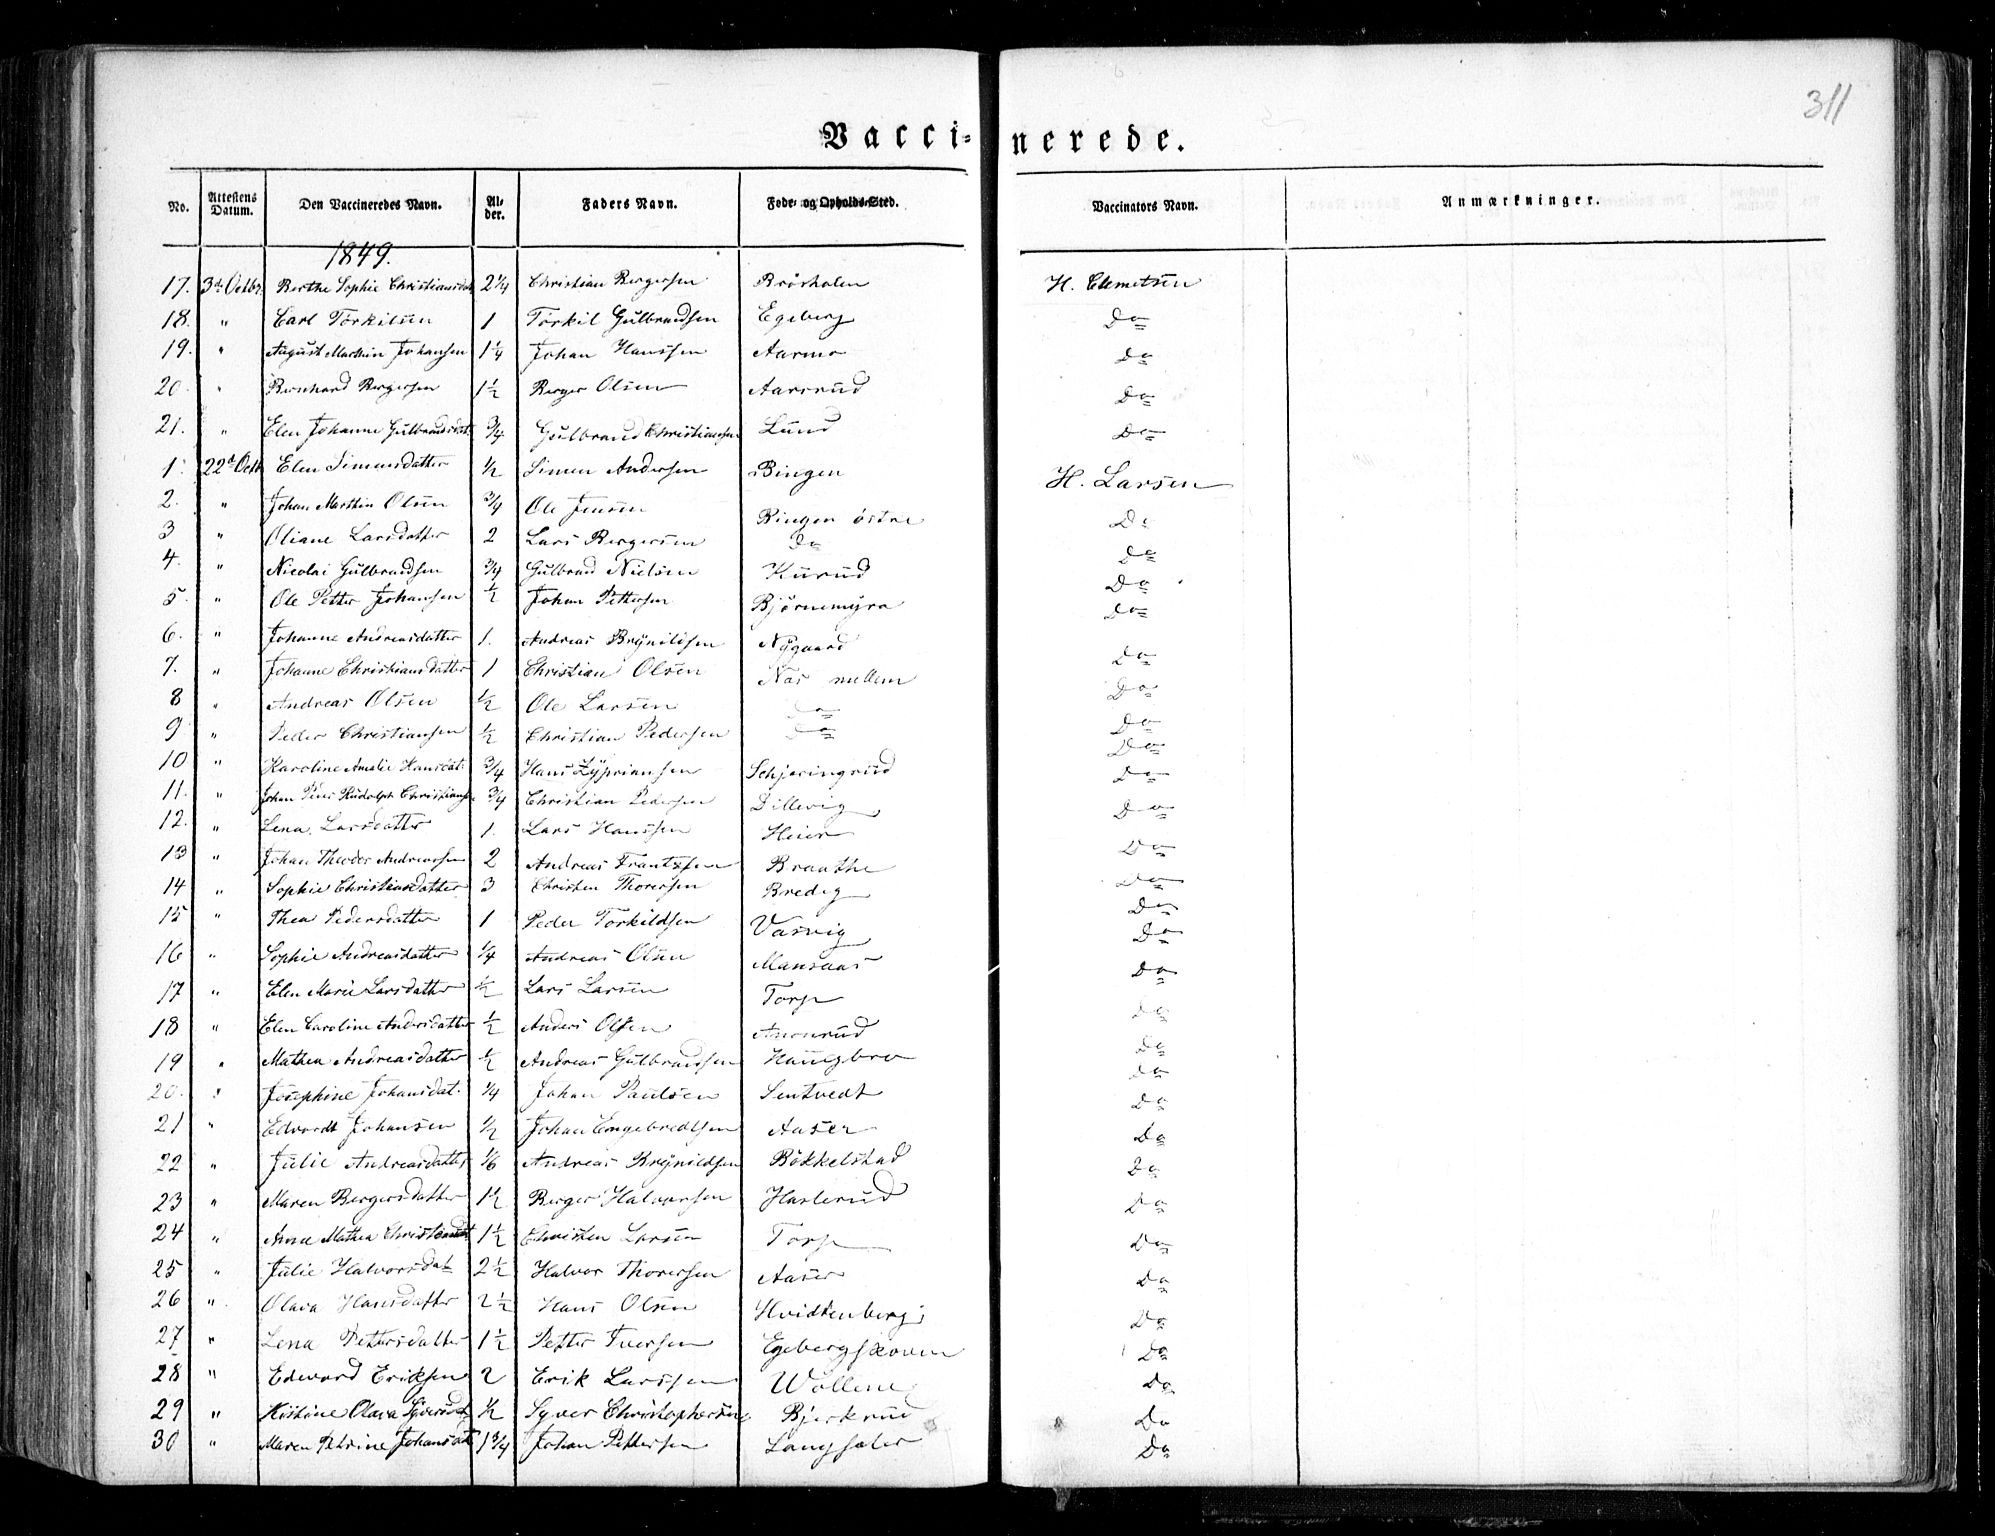 311
Vaccinerede.
No. Attestens Datum. Den Vaccineredes Navn. Alder. Faders Navn. Føde- og Opholds-Sted. Vaccinators Navn. Anmærkninger.
1849.
17. 3de Octbr. Berthe Sophie Christiansdat 2 1/4 Christian Bergersen Brösholen H. Clemetsen
18. " Carl Torkilsen 1 Torkil Gulbrandsen Egeberg Do
19. " August Marthin Johansen 1 1/4 Johan Hanssen Aarmo Do
20. " Bernhard Bergersen 1 1/2 Berger Olsen Aaserud Do
21. " Elen Johanne Gulbrandsdat. 3/4 Gulbrand Christiansen Lund Do
1. 22d Octb Elen Simensdatter 1/2 Simen Andersen Bingen H. Larsen
2. " Johan Marthin Olsen 3/4 Ole Jensen Bingen östre Do
3 " Oliane Larsdatter 2 Lars Bergersen Do Do
4. " Nicolai Gulbrandsen 3/4 Gulbrand Nielsen Kurud Do
5. " Ole Petter Johansen 1/2 Johan Pettersen Bjørnemyra Do
6. " Johanne Andreasdatter 1. Andreas Brynildsen Nygaard Do
7. " Johanne Christiansdatter 1 Christian Olsen Næs mellem Do
8 " Andreas Olsen 1/2 Ole Larsen Do Do
9 " Peder Christiansen 1/2 Christian Pedersen Do Do
10 " Karoline Amalie Hansdat. 3/4 Hans Zypriansen Schjeringrud Do
11. " Johan Rudolph Christiansen 3/4 Christian Pedersen Dillevig Do
12. " Lena Larsdatter 1. Lars Hanssen Heier Do
13 " Johan Theodor Andreassen 2 Andreas Frantzsen Braathe Do
14 " Sophie Christiansdatter 3 Christen Thoresen Bredeg Do
15 " Thea Pedersdatter 1 Peder Torkildsen Vasvig Do
16 " Sophie Andreasdatter 1/4 Andreas Olsen Mansaas Do
17 " Elen Marie Larsdatter 1/2 Lars Larsen Torp Do
18 " Elen Caroline Andersdatter 1/2 Anders Olsen Do
19 " Mathea Andreasdatter 1/2 Andreas Gulbrandsen Haugbro Do
20. " Josephine Johansdat. 1/4 Johan Paulsen Sentvedt Do
21 " Edvardt Johansen 1/2 Johan Engebredtsen Aaser Do
22 " Julie Andreasdatter 1/6 Andreas Brynildsen Bökkelstad Do
23 " Maren Bergersdatter 1 1/2 Berger Halvorsen Haslerud Do
24 " Anne Mathea Christensdat 1 1/2 Christen Larsen Torp Do
25 " Julie Halvorsdat 2 1/2 Halvor Thoresen Aaser Do
26 " Olava Hansdatter 2 1/2 Hans Olsen Hvidtenberg Do
27 " Lena Pettersdatter 1 1/2 Petter Iversen Egebergskoven Do
28 " Edevard Eriksen 2 Erik Larssen Wollene Do
29 " Kistine Olava Syversdat 1/2 Syver Christophersen Bjerkrud Do
30 " Maren Petrine Johansdat 1 3/4 Johan Pettersen Langsæter Do